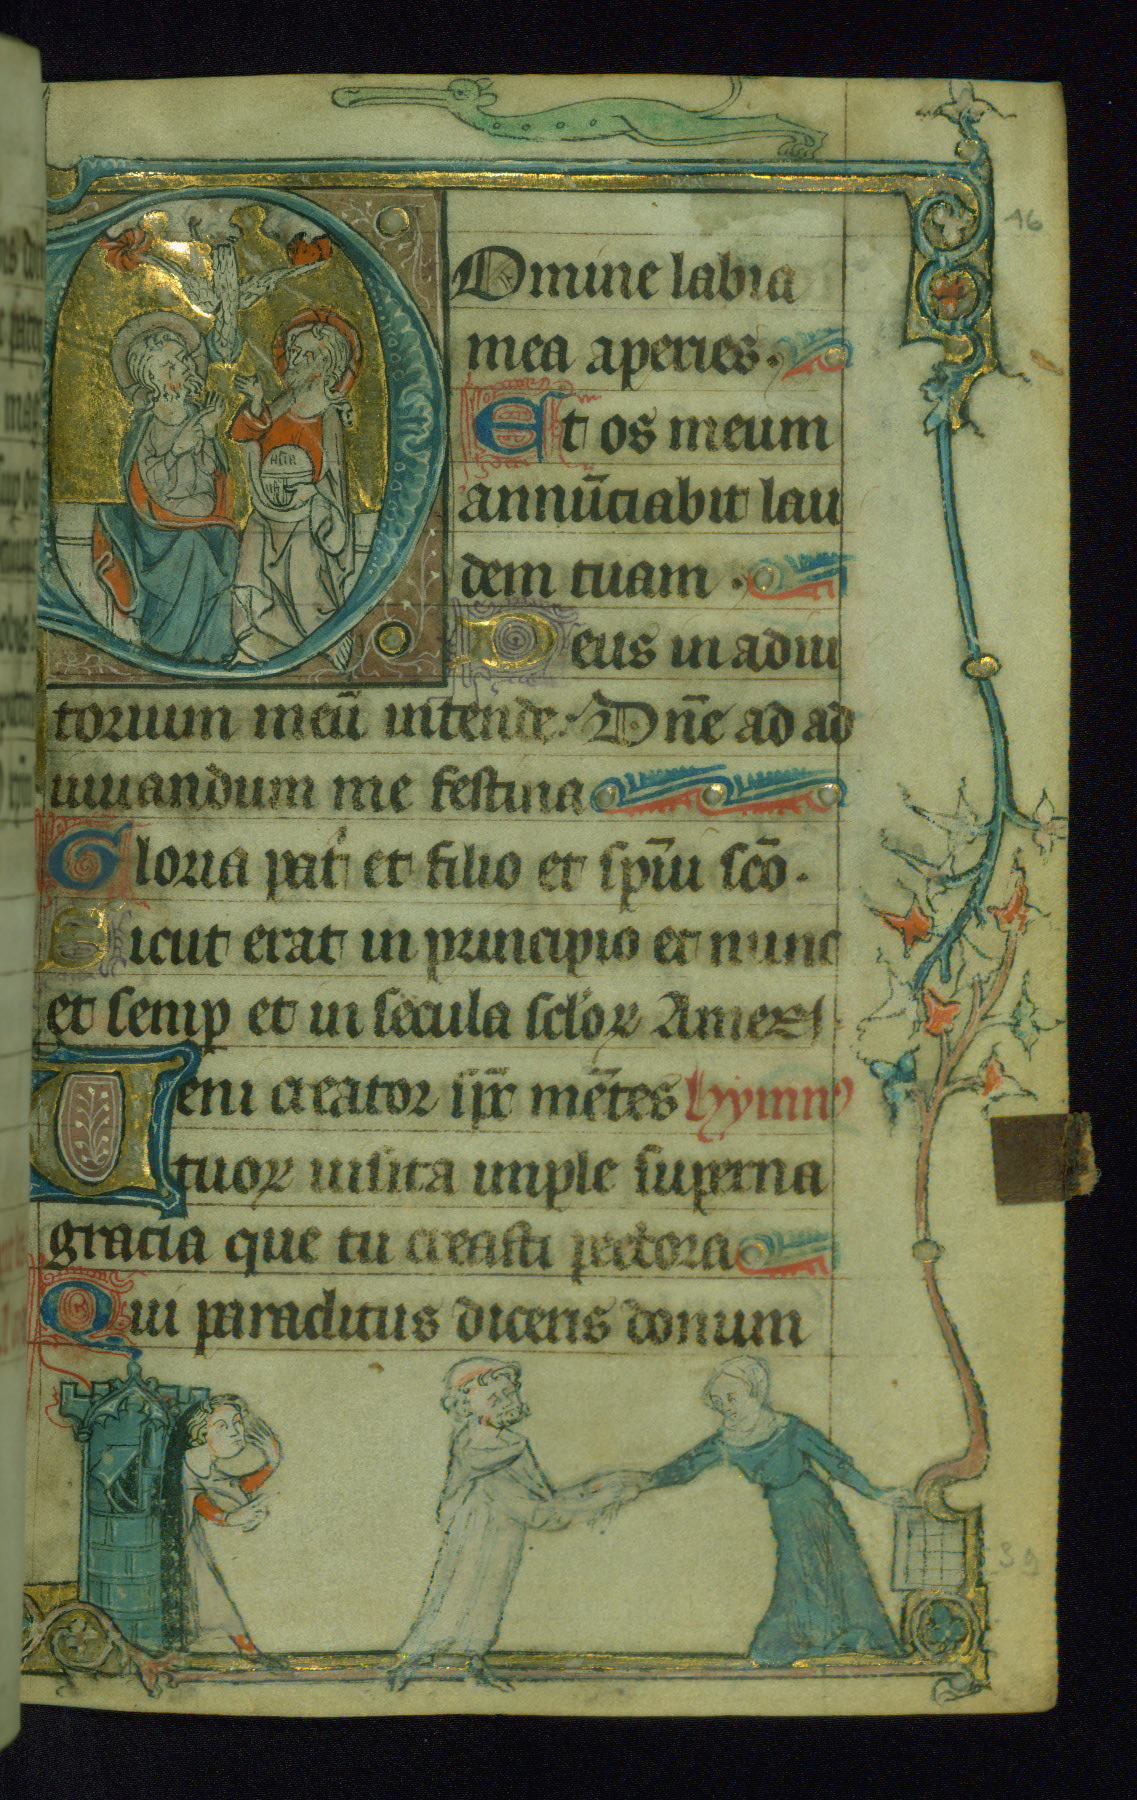 Domine labia
mea aperies.
Et os meum
annũciabit lau
dem tuam.
Deus in adiu
torium meũ intende. Dñe ad ad
iuuandum me festina
Gloria pat̃ et filio et sp̃ui sc̃o.
Sicut erat in principio et nunc
et semp et in secula sclõꝝ Amen
Ueni creator sp̃c mẽtes hymnꝰ
tuoꝝ uisita imple superna
gracia que tu creasti pectora
Qui paraclitus diceris donum
46
39